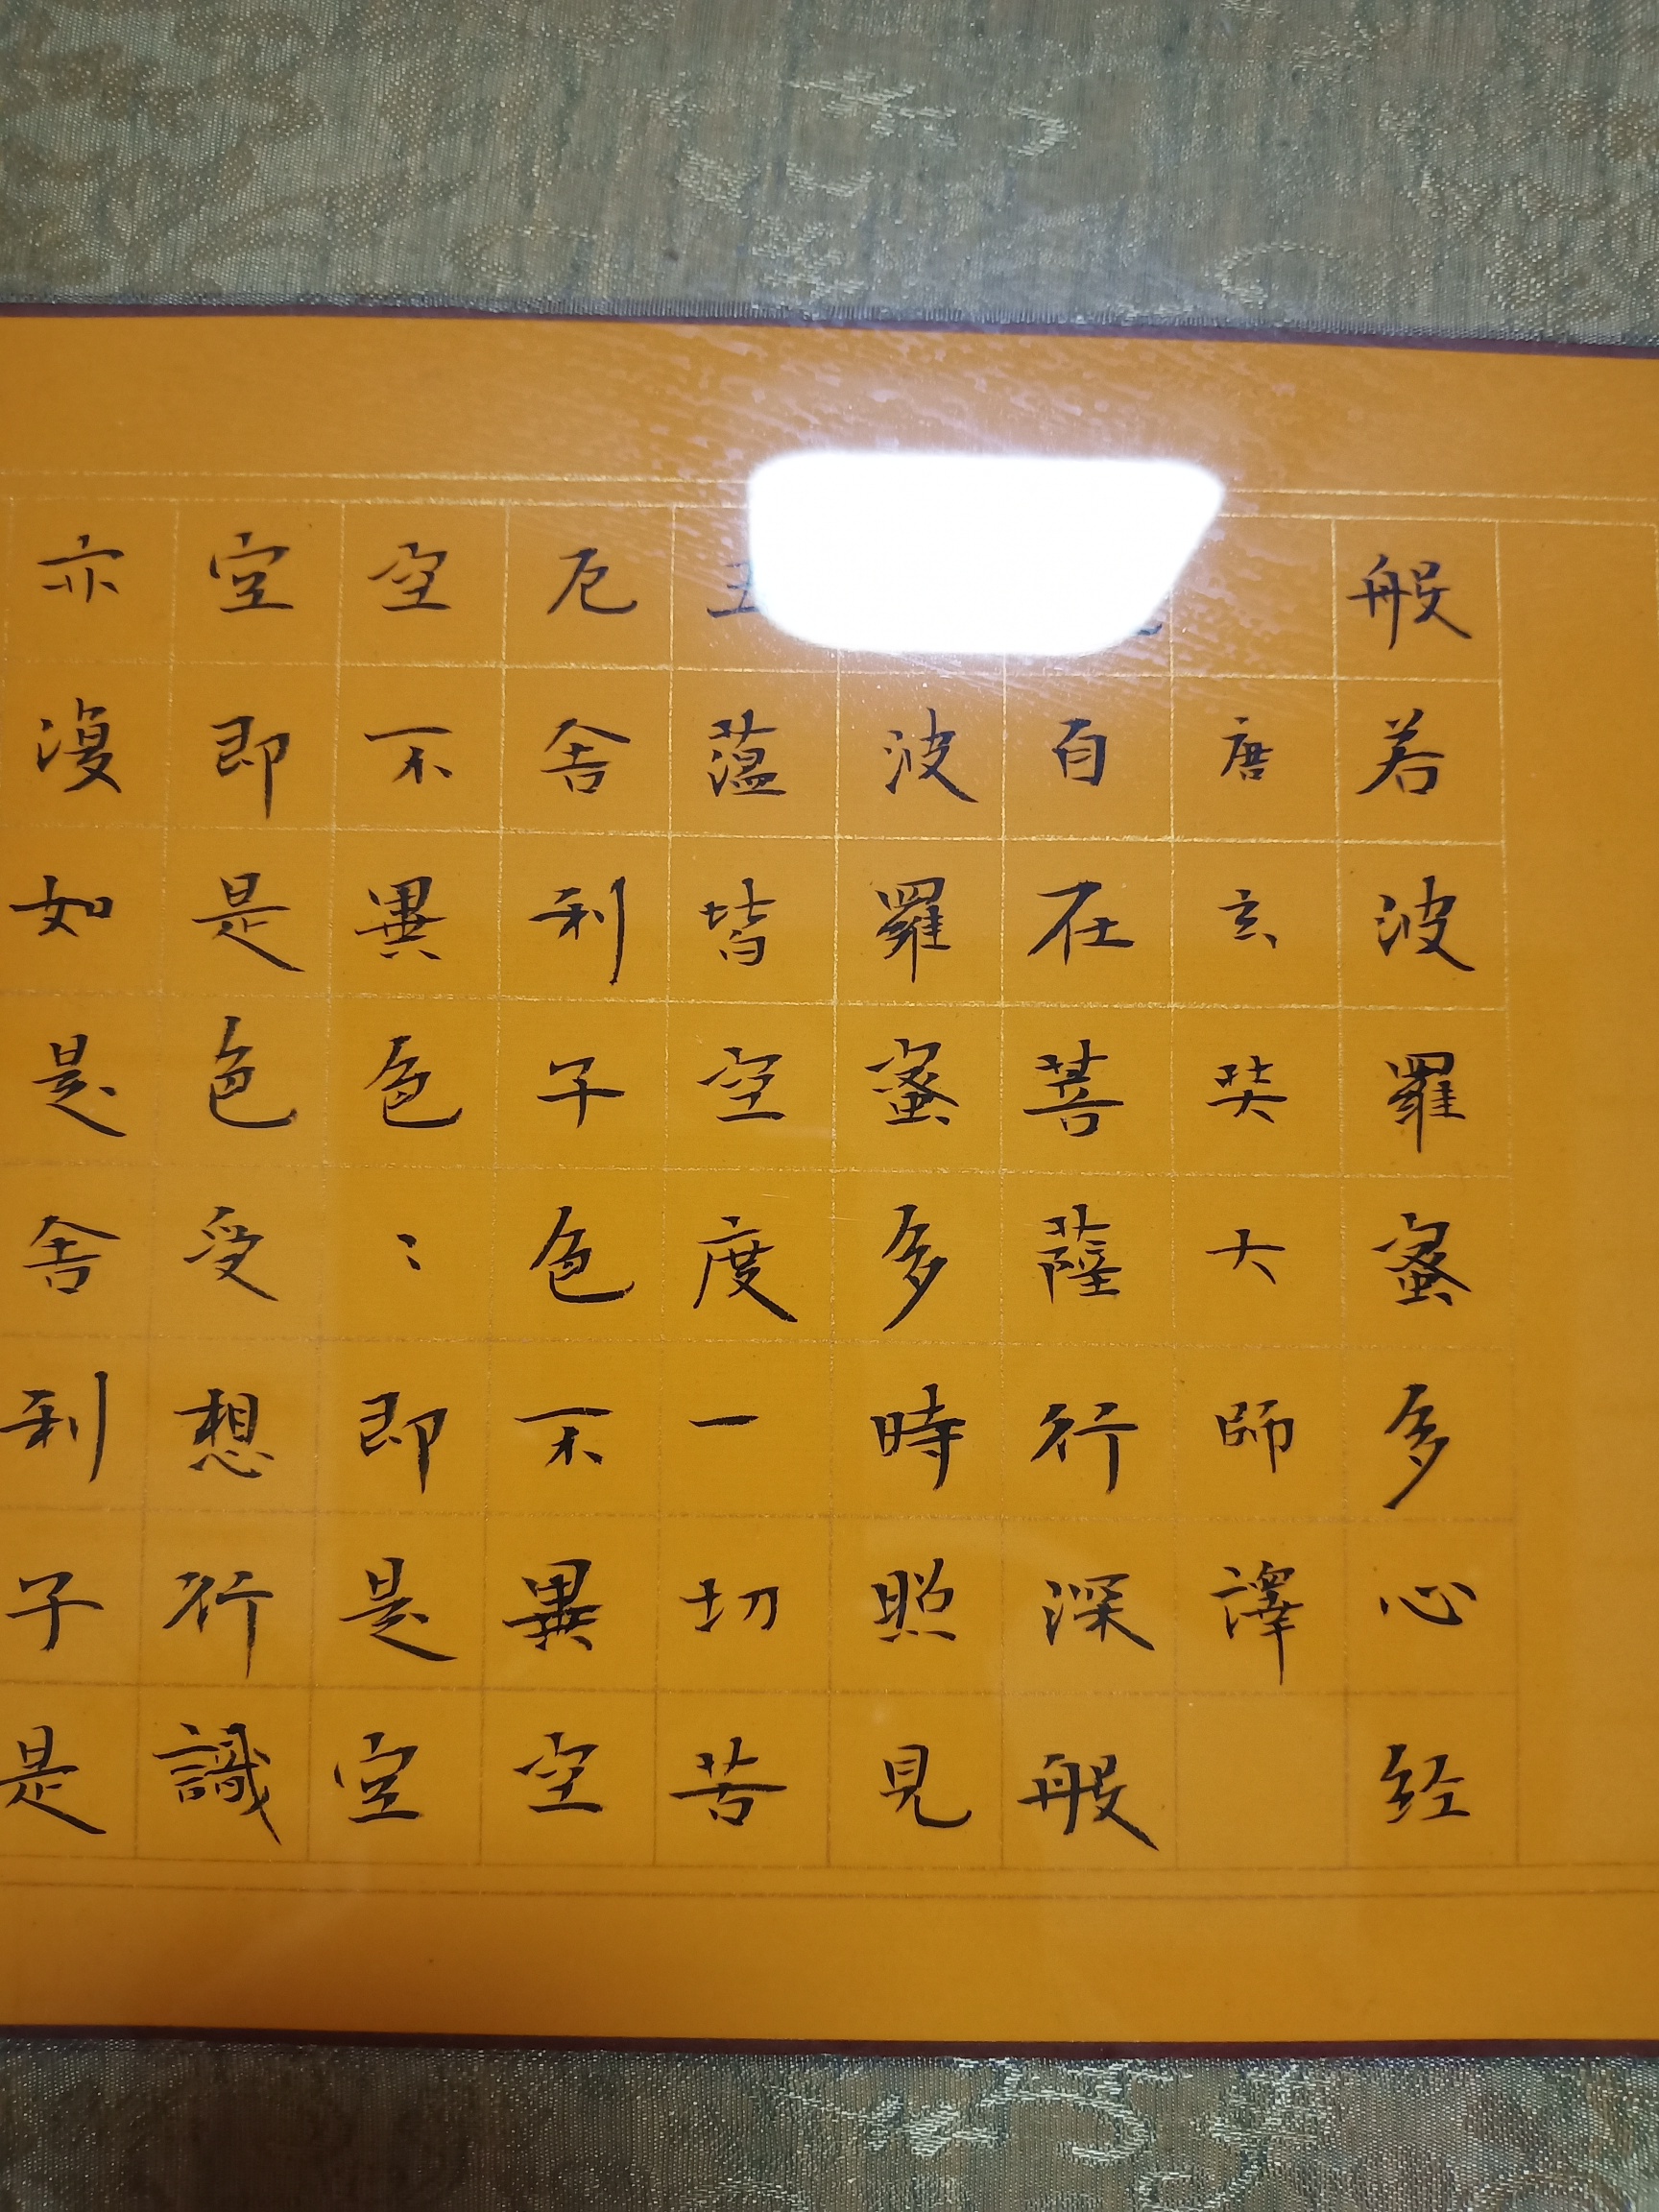 般若波羅蜜多心経
唐玄奘大師譯
自在菩薩行深般
波羅蜜多時照見
五蘊皆空度一切苦
厄舍利子色不異空
空不異色〻即是空
空即是色受想行識
亦復如是舍利子是